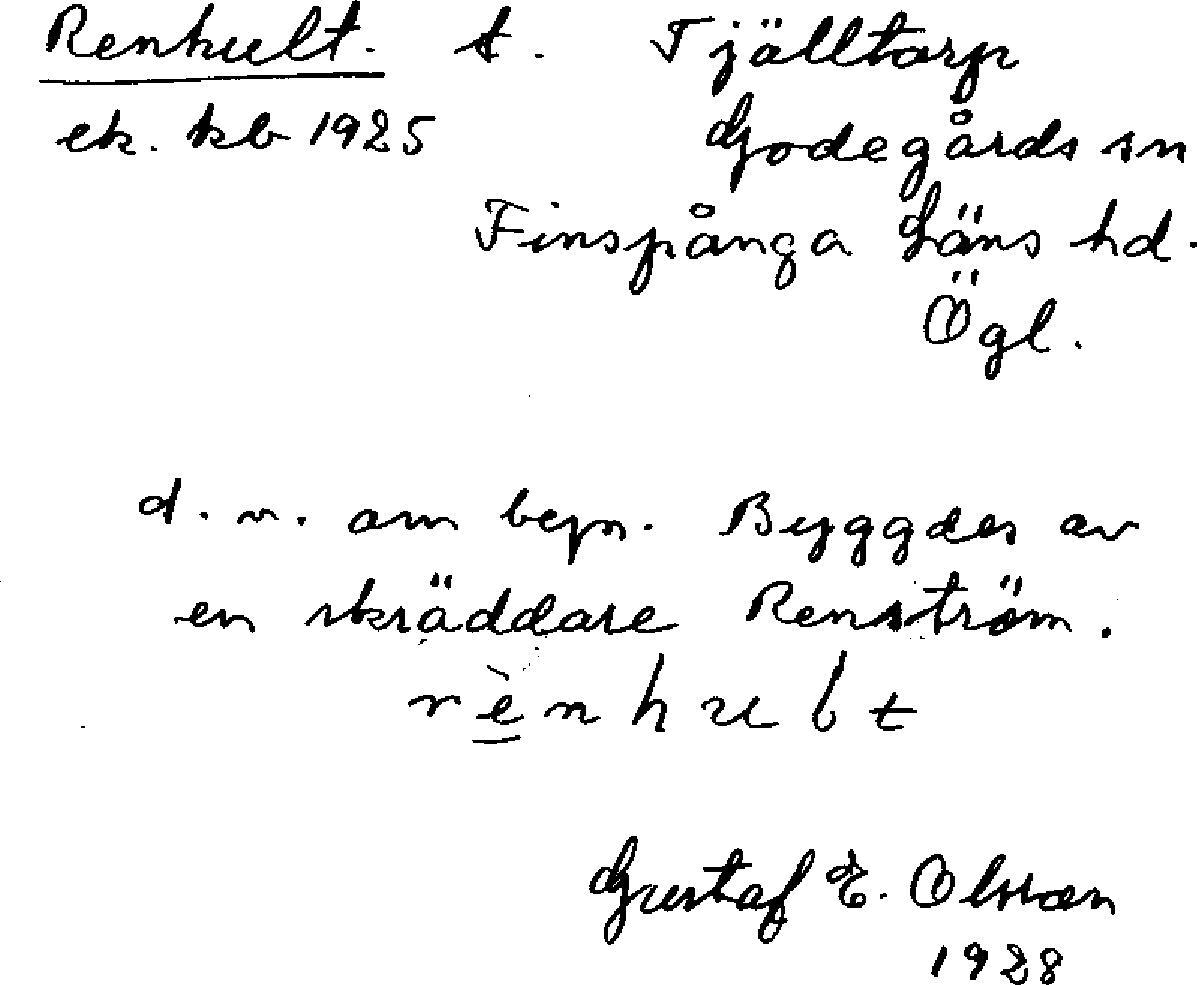 Renhult. t. Tjälltorp
ek. kb 1925 Godegårds sn
Finspånga Läns hd.
Ögl.
d. n. om begn. Byggdes av
en skräddare Renström.
rènhult
Gustaf E. Olsson
1928